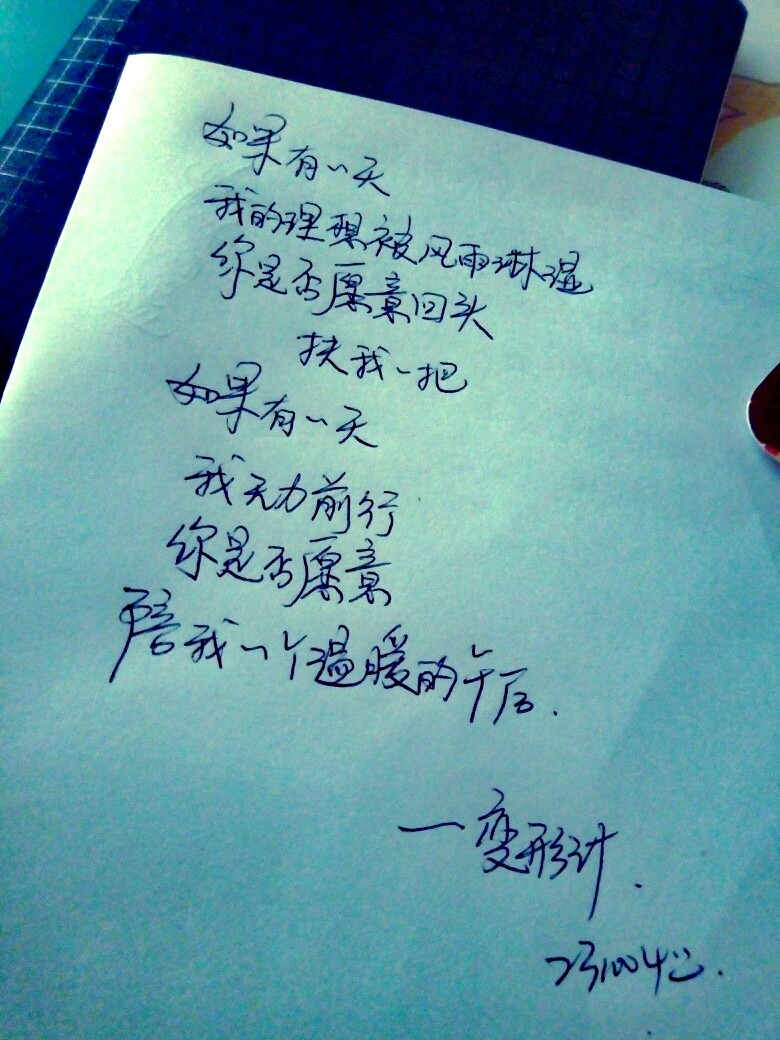 如果有一天
我的理想被风雨淋湿
你是否愿意回头
扶我一把
如果有一天
我无力前行
你是否愿意
陪我一个温暖的午后.
—变形计.